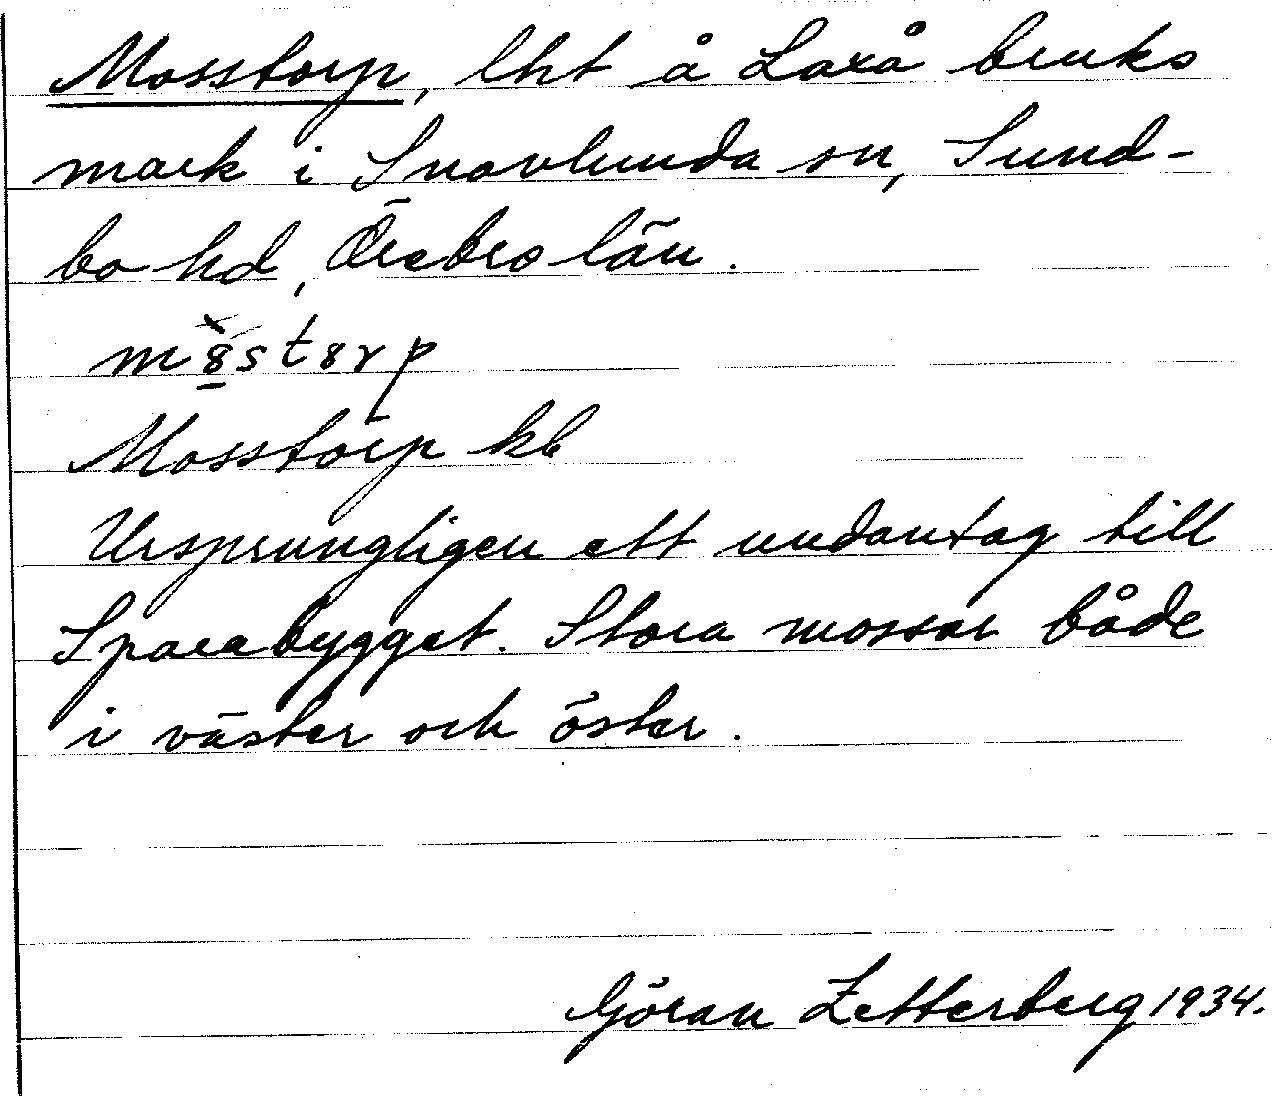 Mosstorp, lht å Laxå bruks
mark i Snavlunda sn, Sund-
bo hd, Örebro län.
Mosstorp kb
Ursprungligen ett undantag till
Sparabygget. Stora mossar både
i väster och öster.
Göran Zetterberg 1934.